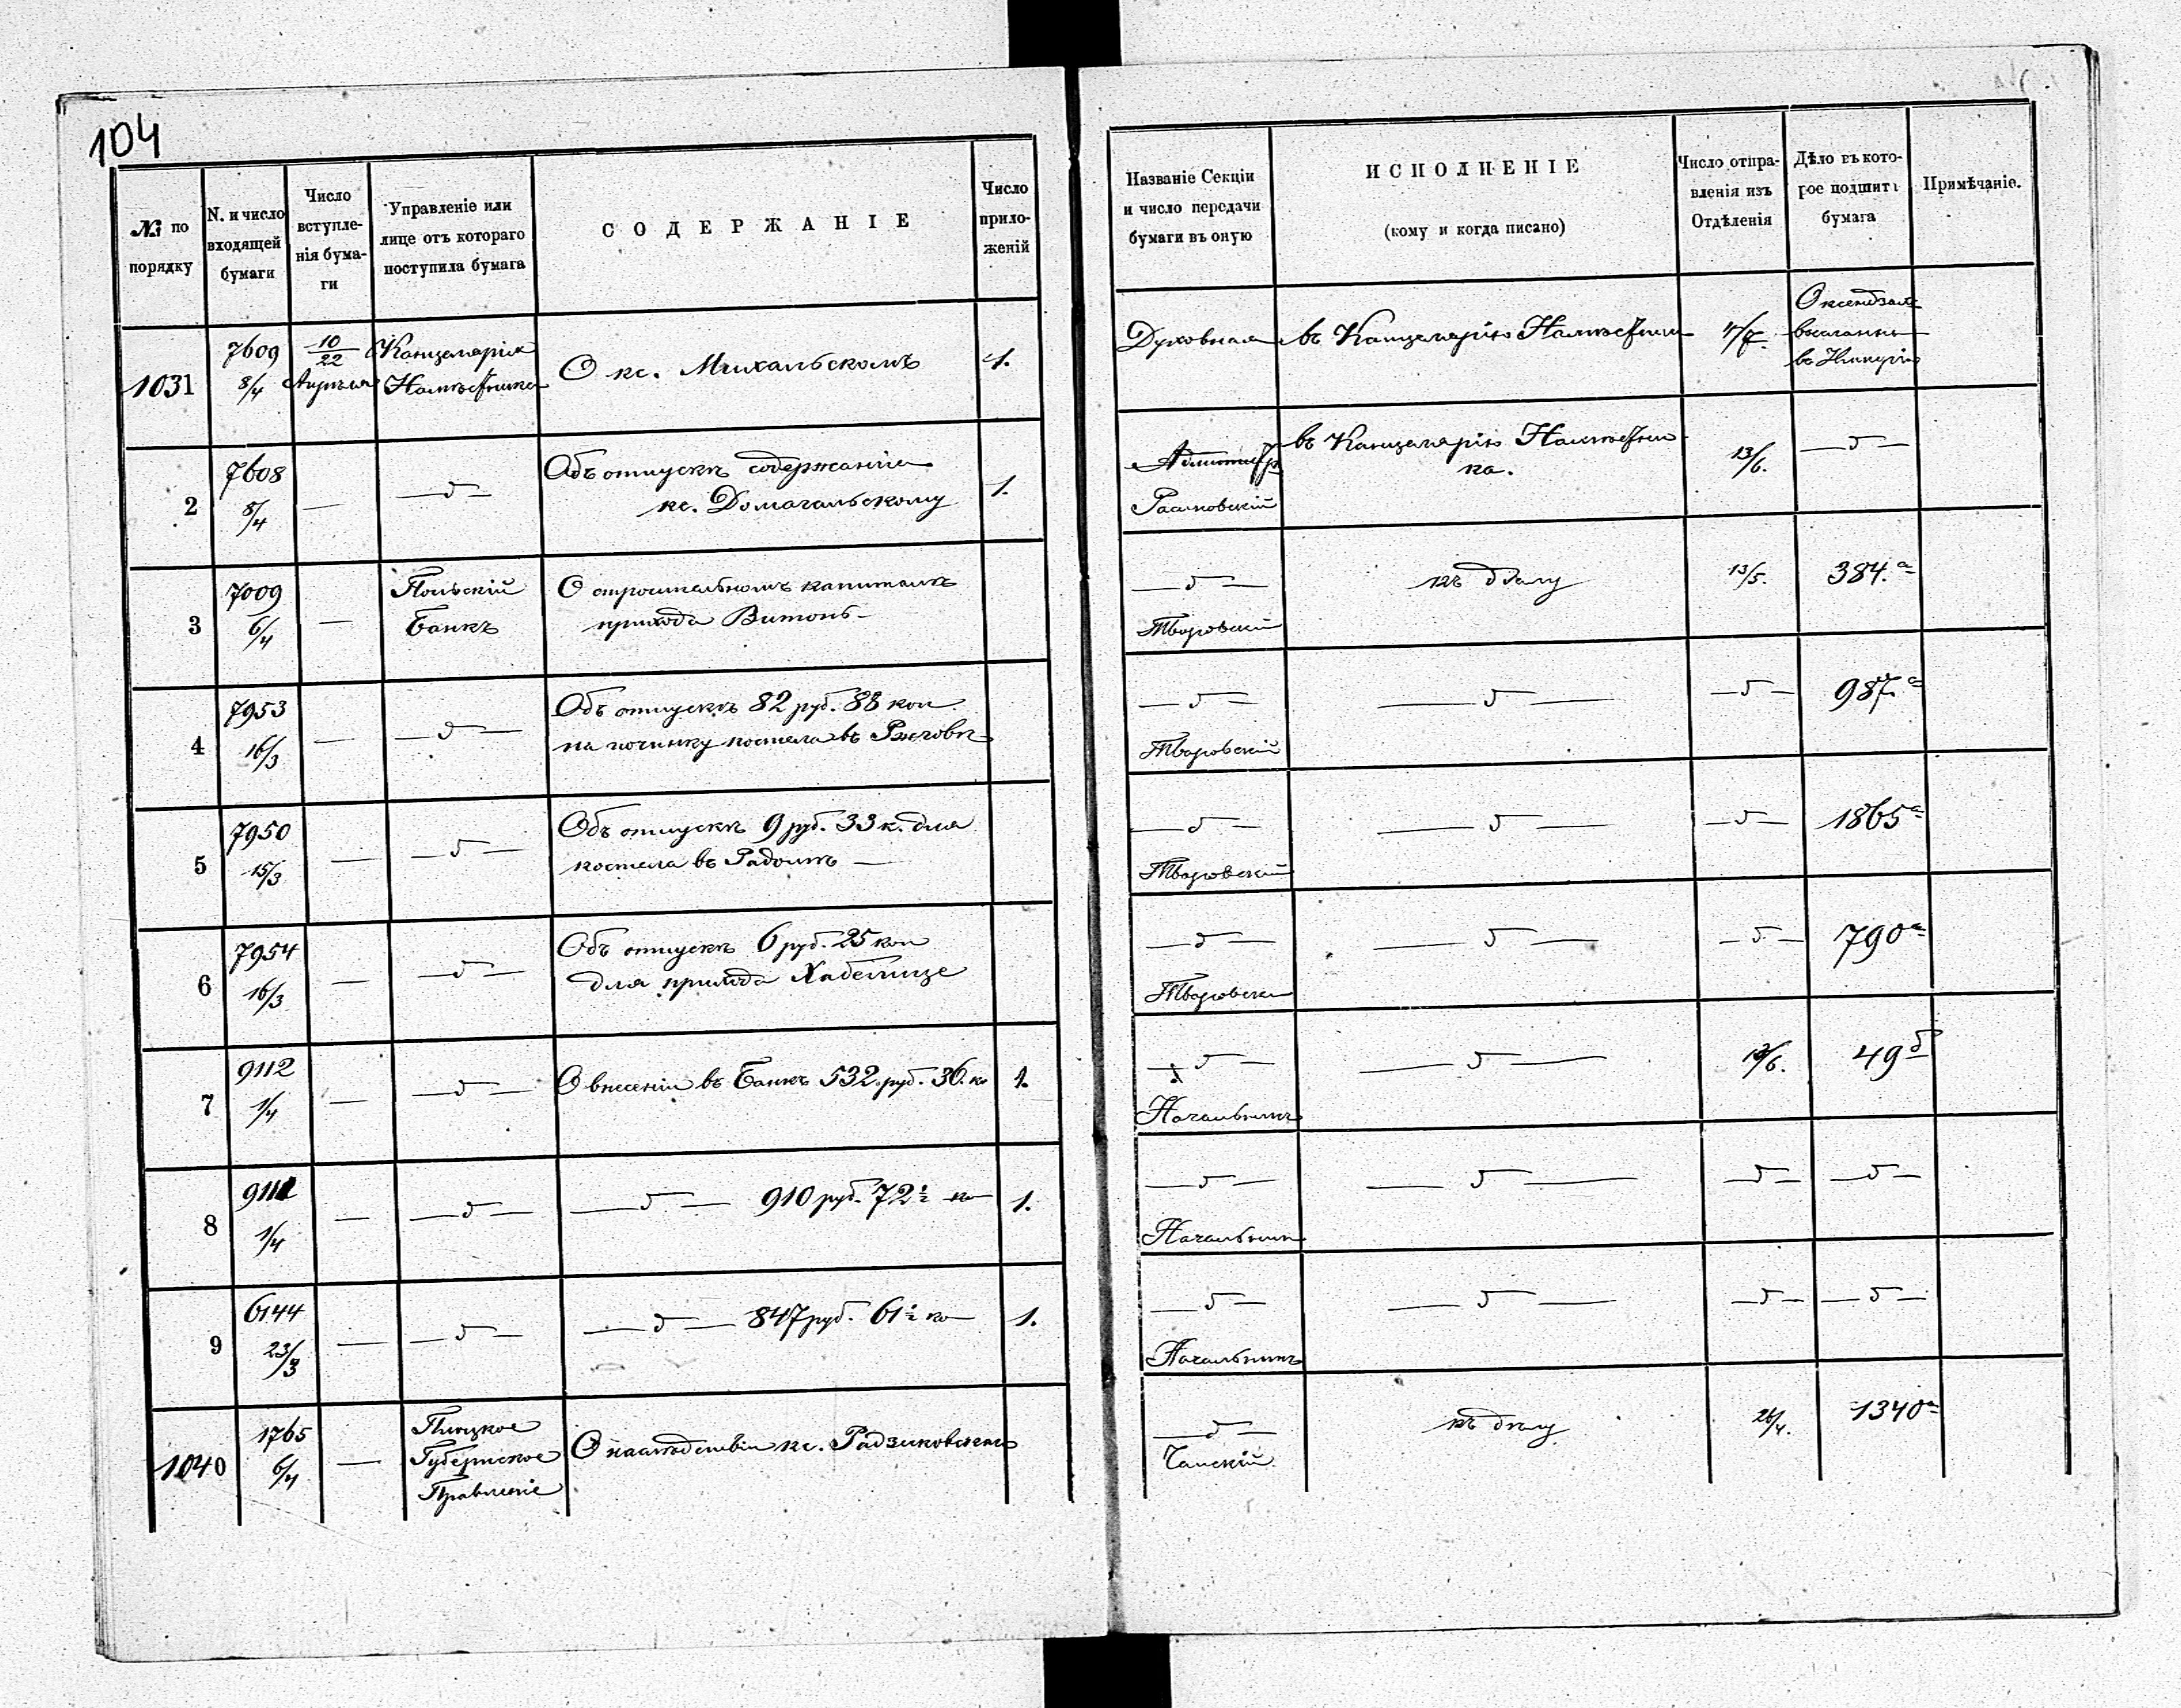 104
№ по порядку
N. и число входящей бумаги
Число вступле-нія бума-ги
Управленіе или лице отъ котораго поступила бумага
СОДЕРЖАНІЕ
Число прило-женій
Названіе Секціи и число передачи бумаги въ оную
ИСПОЛНЕНІЕ
(кому и когда писано)
Число отпра-вленія изъ Отдѣленія
Дѣло въ кото-рое подшита бумага
Примѣчаніе.
1031
7609
8/4
10/22
Апрѣля
Канцелярія
Намѣстника
О кс. Михальскомъ
1.
Духовная
въ Канцелярію Намѣстни
въ Имперію
2
7608
8/4
—
— д —
Объ отпускѣ содержанія
кс. Домагальскому
1.
въ Канцелярію Намѣстни-
ка.
13/6.
— д —
3
7009
6/4
—
Польскій
Банкъ
О строительномъ капиталѣ
прихода Витонь-
— д —
Творовскій
къ дѣлу
13/5.
384.а
4
7953
16/3
—
— д —
Объ отпускѣ 82 руб. 88 коп
на починку костела въ Ржговѣ
— д —
Творовскій
— д —
— д —
987.а
5
7950
15/3
—
— д —
Объ отпускѣ 9 руб. 33 к. для
костела въ Радомѣ —
— д —
Творовскій
— д —
— д —
1865а
6
7954
16/3
—
— д —
Объ отпускѣ 6 руб. 25 коп
для прихода Хабелице
— д —
Творовски
— д —
— д —
790а
7
9112
1/4
—
— д —
О внесеніи въ Банкъ 532 руб. 36. к
1.
— д —
Начальникъ
— д —
49б
8
1/4
—
— д —
— д — 910 руб. 72½ ко
1.
— д —
Начальник
— д —
— д —
— д —
9
6144
23/3
—
— д —
— д — 847 руб. 61½ ко
1.
— д —
Начальникъ
— д —
— д —
— д —
1040
1765
6/4
—
Плоцкое
Губернское
Правленіе
О наслѣдствіи кс. Радзиковскаго
— д —
къ дѣлу
26/4.
1340а